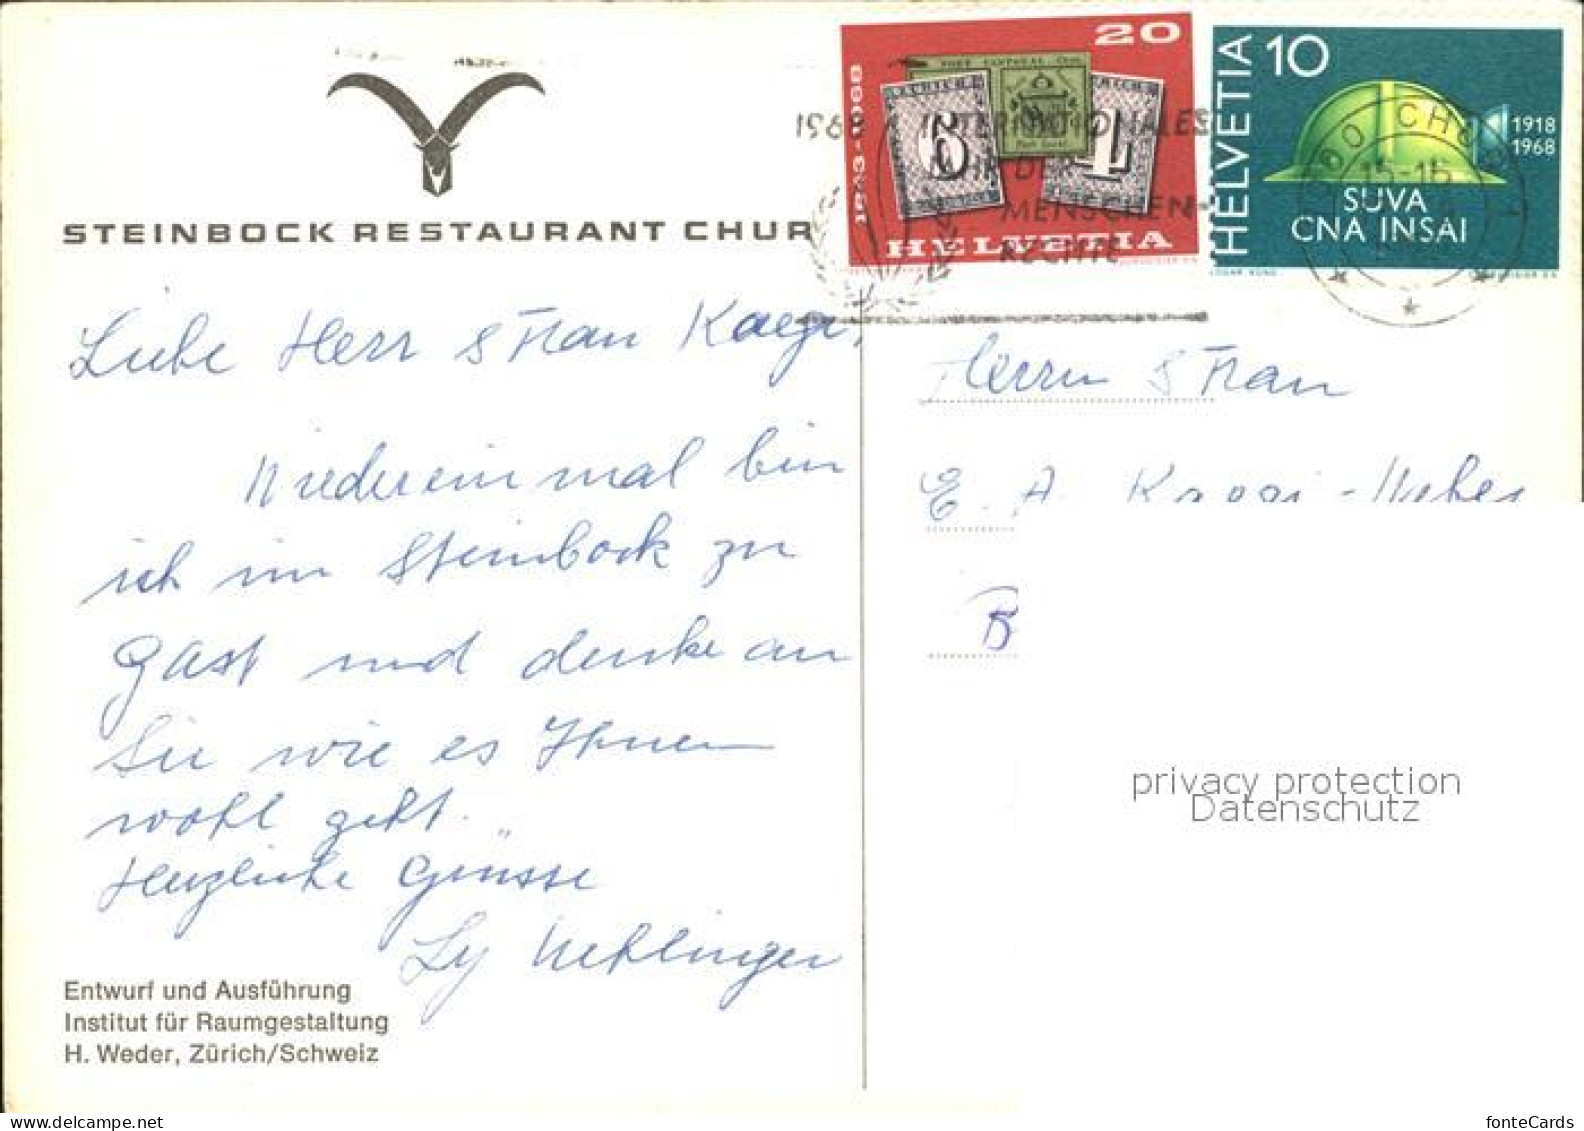 STEINBOCK RESTAURANT CHUR
Liebe Herr & Frau Kaegi,
Wiedereinmal bin
ich im Steinbock zu
Gast und denke an
Sie wie es Ihnen
wohl geht.
Herzliche Grüsse
Ly Wehlinger
Entwurf und Ausführung
Institut für Raumgestaltung
H. Weder, Zürich/Schweiz
20
1843-1968
HELVETIA
HELVETIA
10
1918
1968
SUVA
CNA INSAI
1968 INTERNATIONALES
JAHR DER
MENSCHEN-
RECHTE
CHUR
15-16
Herrn & Frau
E. A. Kaegi-Weber
B
privacy protection
Datenschutz
fonteCards